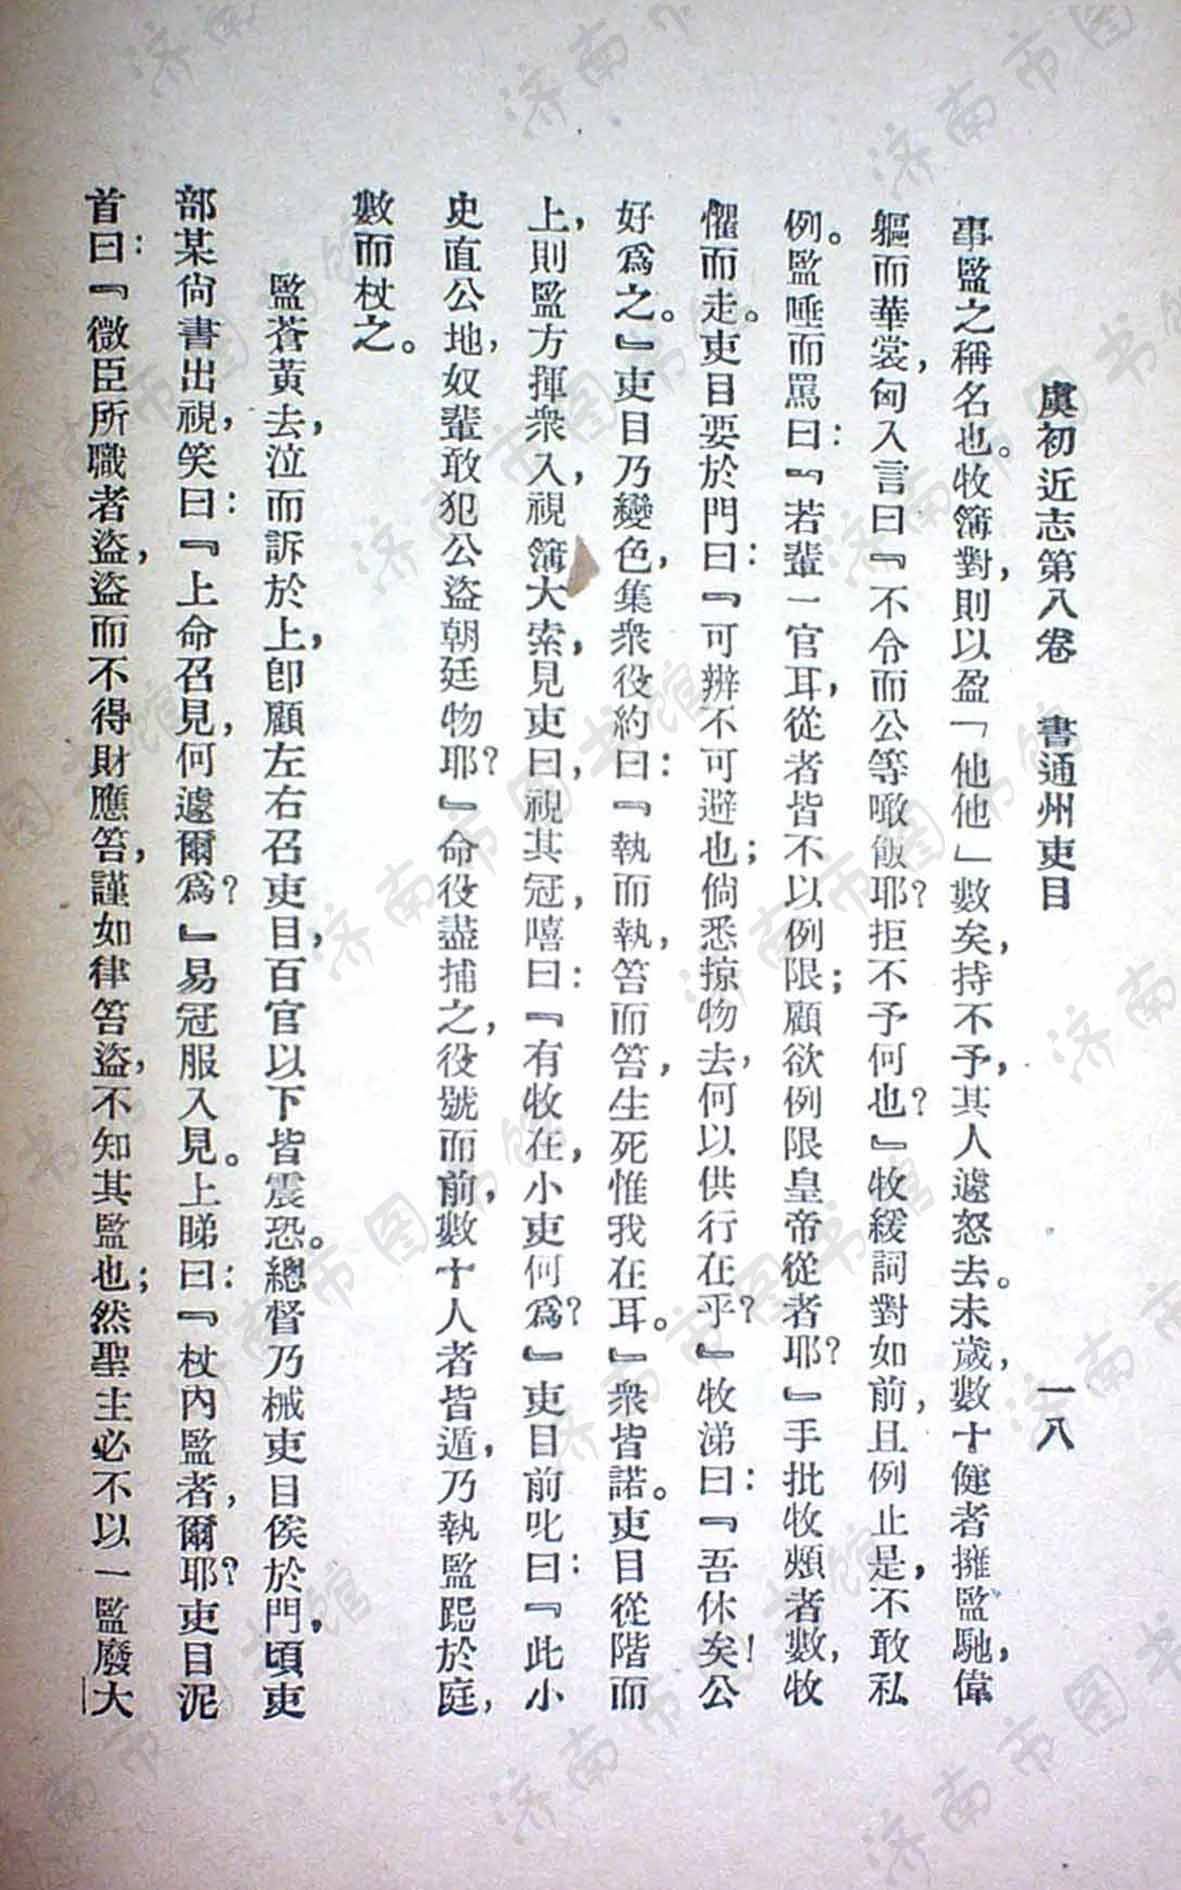 虞初近志第八卷　書通州吏目　一八
事監之稱名也。牧簿對，則以盈「他他」數矣，持不予，其人遽怒去。未歲，數十健者擁監馳，偉
軀而華裳，匈入言曰『不令而公等噉飯耶？拒不予何也？』牧緩詞對如前，且例止是，不敢私
例。監唾而罵曰：『若輩一官耳，從者皆不以例限；顧欲例限皇帝從者耶？』手批牧頰者數，牧
懼而走。吏目要於門曰：『可辦不可避也；倘悉掠物去，何以供行在乎？』牧涕曰：『吾休矣！公
好爲之。』吏目乃變色，集衆役約曰：『執而執，笞而笞，生死惟我在耳。』衆皆諾。吏目從階而
上，則監方揮衆入，視簿大索，見吏曰，視其冠，嘻曰：『有牧在，小吏何爲？』吏目前叱曰：『此小
史直公地，奴輩敢犯公盜朝廷物耶？』命役盡捕之，役號而前，數十人者皆遁，乃執監跽於庭，
數而杖之。
監蒼黃去，泣而訴於上，卽顧左右召吏目，百官以下皆震恐。總督乃械吏目俟於門，頃吏
部某尙書出視，笑曰：『上命召見，何遽爾爲？』易冠服入見。上睇曰：『杖內監者，爾耶？吏目泥
首曰：『微臣所職者盜，盜而不得財應笞，謹如律笞盜，不知其監也；然聖主必不以一監廢大
济南市图书馆